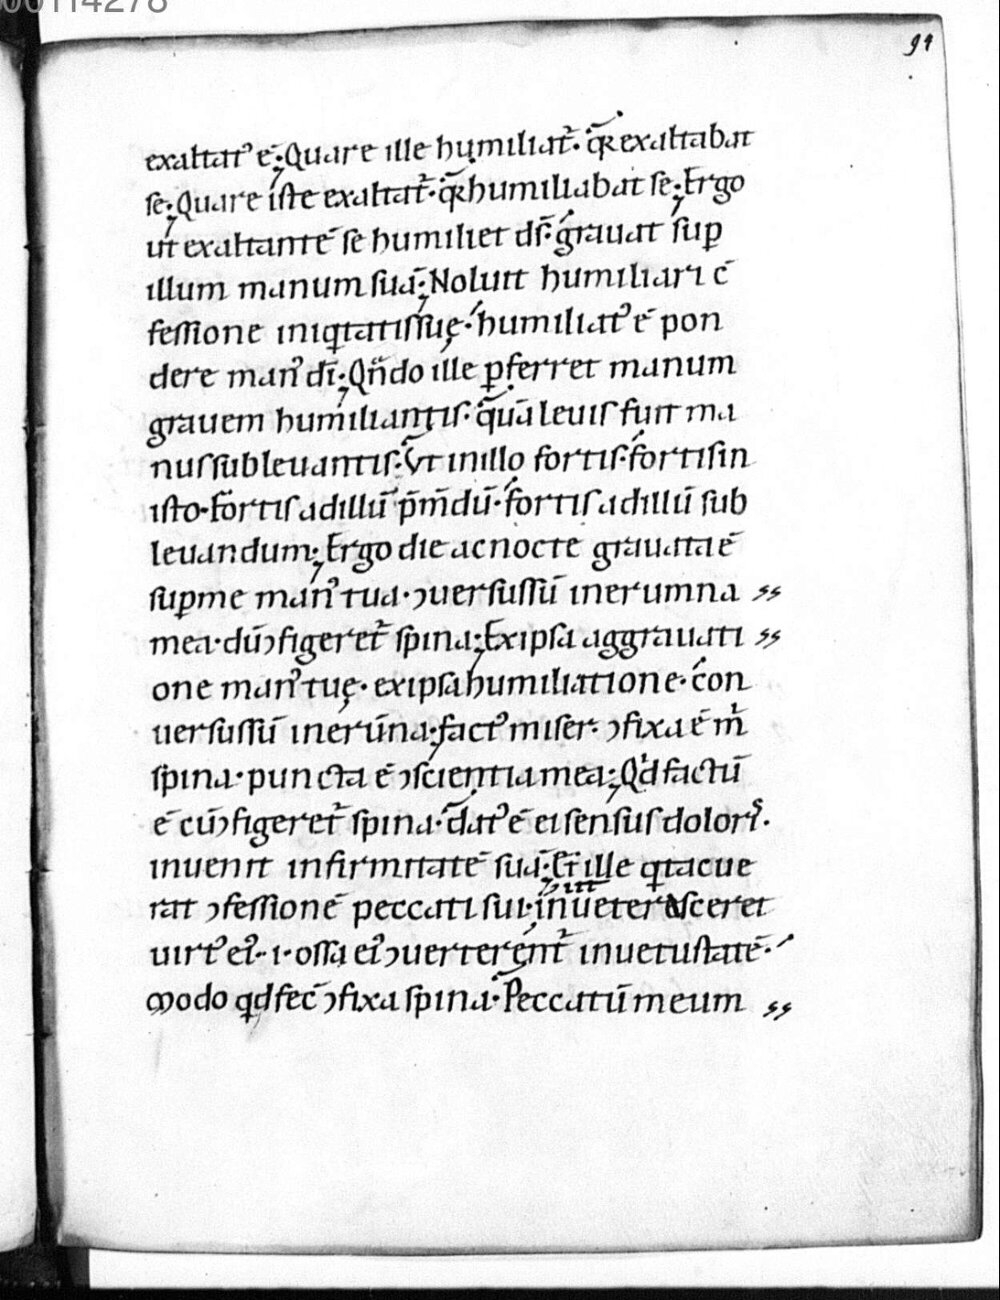 00114278
94
exaltatꝰ ē; Quare ille humiliat᷑. q̄re exaltabat
se; Quare iste exaltat᷑. q̄re humiliabat se; Ergo
ut exaltantē se humiliet dſ̄. grauat sup
illum manum suā; Noluit humiliari c̄
fessione iniqͥtatis suę. humiliatꝰ ē pon
dere manꝰ dī; Qn̄do ille pferret manum
grauem humiliantis. q̄uā leuis fuit ma
nus subleuantis. Vt in illo fortis. fortis in
isto. fortis ad illū p̄m̄dū. fortis ad illū sub
leuandum; Ergo die ac nocte grauata ē
supme manꝰ tua. ↄuersus sū in erumna
mea. dū ↄfigeret᷑ spina; Ex ipsa aggrauati
one manꝰ tuę. ex ipsa humiliatione. con
uersus sū in erūna. factꝰ miser. ↄfixa ē m͛
spina. puncta ē ↄscientia mea; Qd factū
ē cū ↄfigeret᷑ spina. datꝰ ē ei sensus doloris.
inuenit infirmitatē suā; Et ille qͥ tacue
rat ↄfessionē peccati sui. in ueterasceret
uirtꝰ eiꝰ. .i. ossa eiꝰ ↄuerterent᷑ in uetustatē.
modo qd fec̄ ↄfixa spina. Peccatū meum